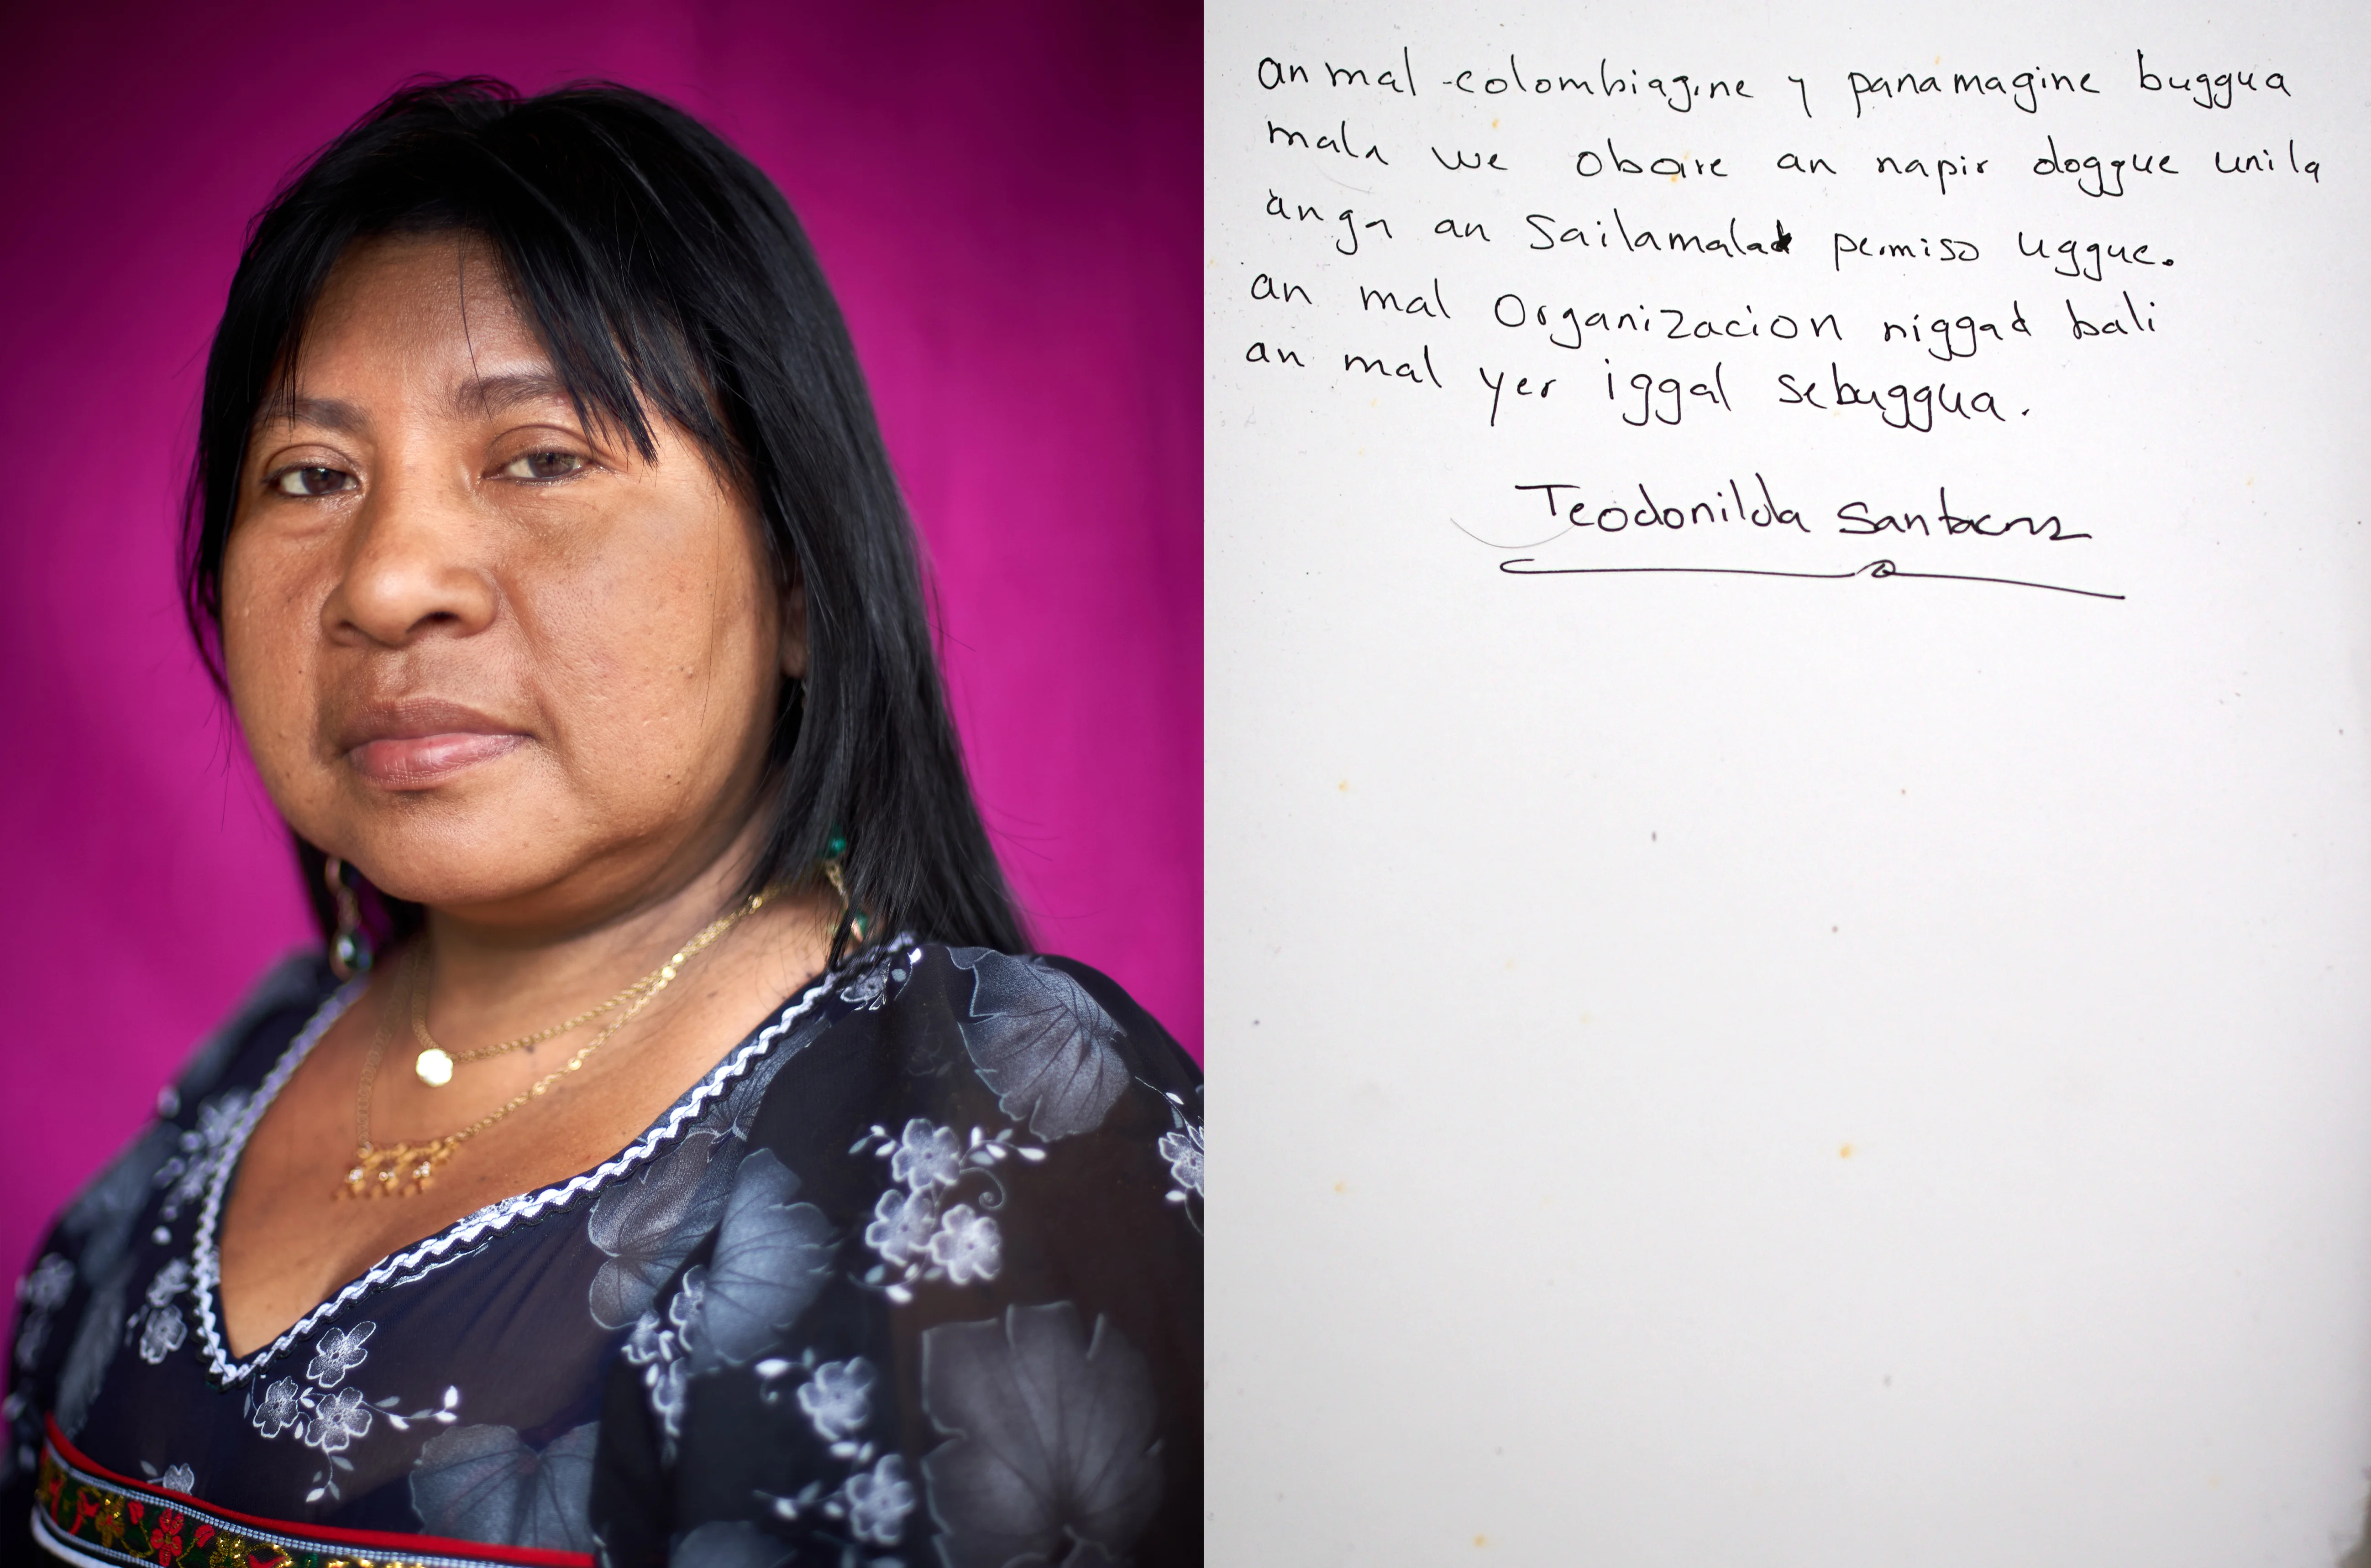 an mal colombiagine y panamagine buggua
mala we obare an napir doggue unila
anga an Sailamalad permiso uggue.
an mal Organizacion niggad bali
an mal yer iggal sebuggua.
Teodonilda Santacruz